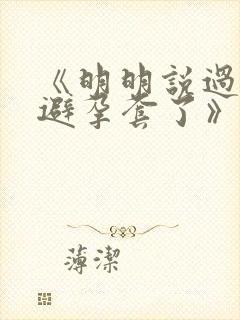 《明明説過
避孕套了》
薄潔